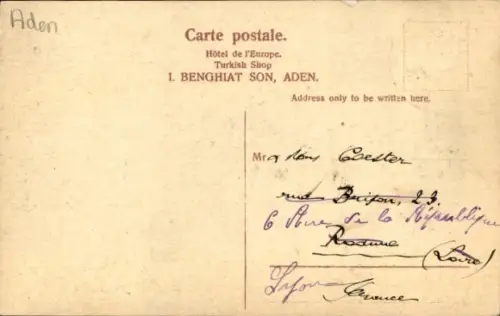 Aden
Carte postale.
Hôtel de l'Europe.
Turkish Shop
I. BENGHIAT SON, ADEN.
Address only to be written here.
Mr
23
6 Rue de la République
(Loire)
Lyon
France